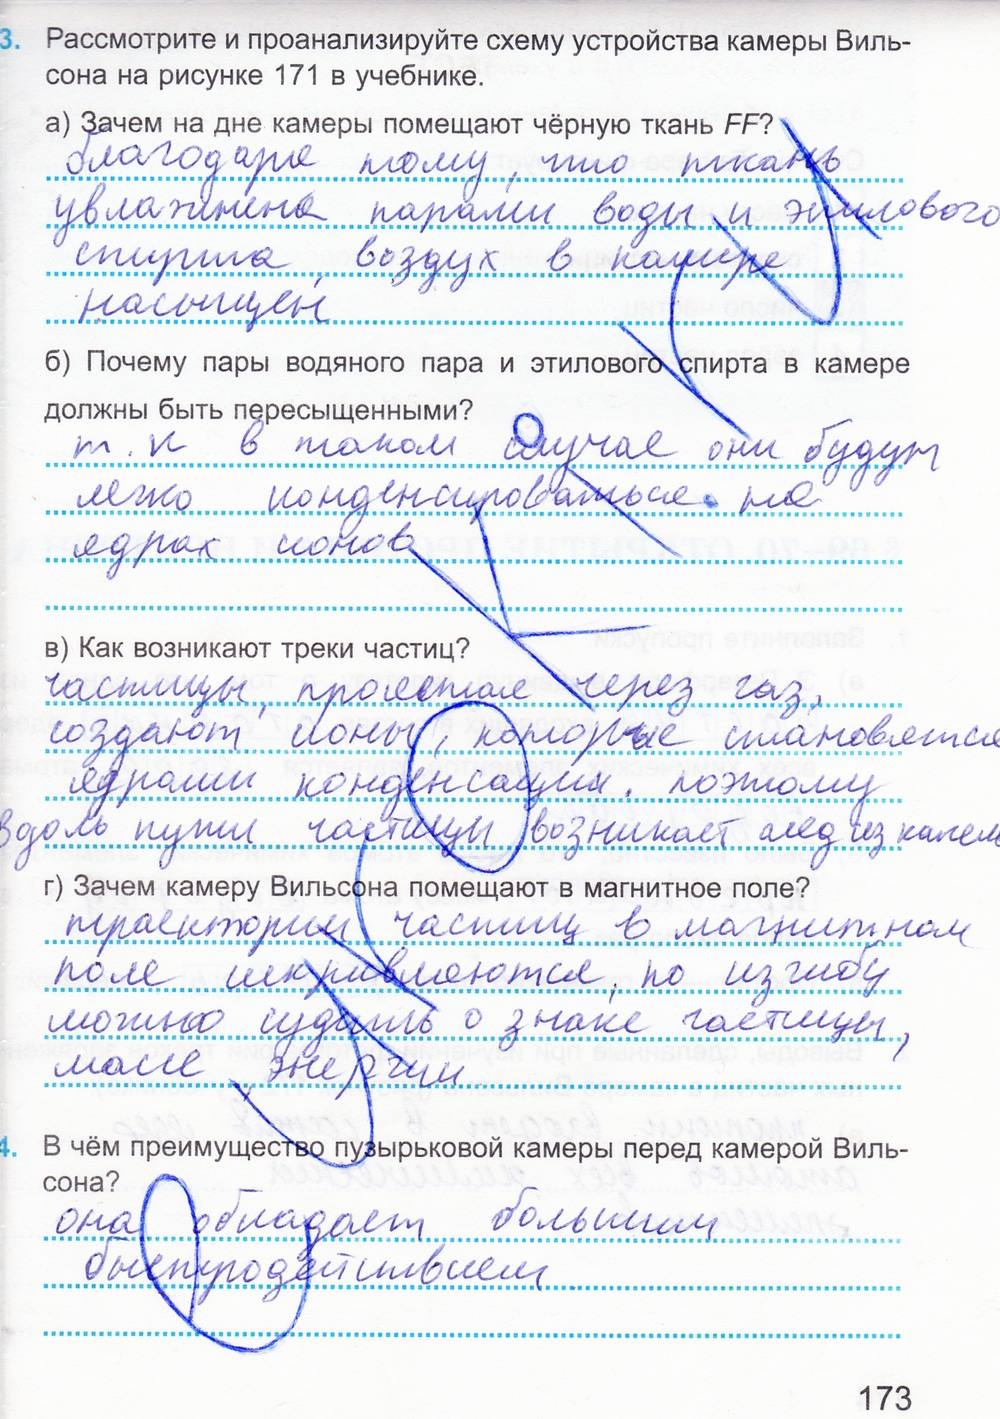 3. Рассмотрите и проанализируйте схему устройства камеры Виль-
сона на рисунке 171 в учебнике.
а) Зачем на дне камеры помещают чёрную ткань FF?
благодаря тому, что ткань
увлажнена парами воды и этилового
спирта, воздух в камере
насыщен
б) Почему пары водяного пара и этилового спирта в камере
должны быть пересыщенными?
т. к в таком случае они будут
легко конденсироваться на
ядрах ионов
в) Как возникают треки частиц?
частицы, пролетая через газ,
создают ионы, которые становятся
ядрами конденсации, поэтому
вдоль пути частицы возникает след из капель
г) Зачем камеру Вильсона помещают в магнитное поле?
траектории частиц в магнитном
поле искривляются, по изгибу
можно судить о знаке частицы,
массе, энергии
4. В чём преимущество пузырьковой камеры перед камерой Виль-
сона?
она обладает большим
быстродействием
173